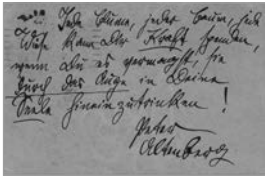 Jede Blume, jeder Baum, jede
Wiese kann Dir Kraft spenden,
wenn Du es vermagst, sie
durch das Auge in Deine
Seele hineinzutrinken!
Peter
Altenberg